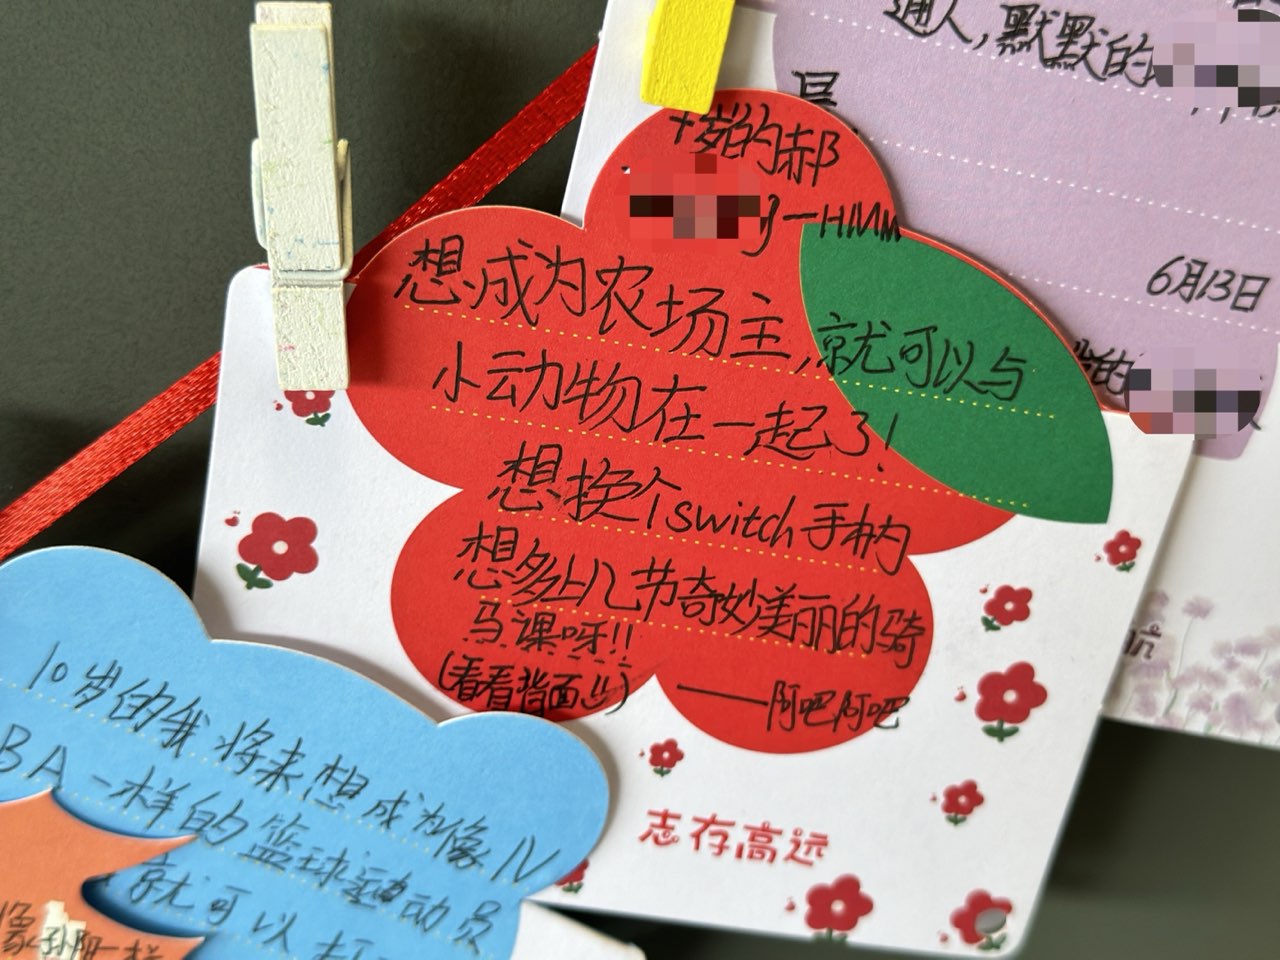 通人,默默的
是
6月13日
岁的
十岁的郝
—HMM
想成为农场主,就可以与
小动物在一起了!
想换个switch手柄
想多上几节奇妙美丽的骑
马课呀!!
(看看背面)
——阿吧阿吧
志存高远
10岁的我将来想成为像N
BA一样的篮球运动员
就可以打
像孙阳一样